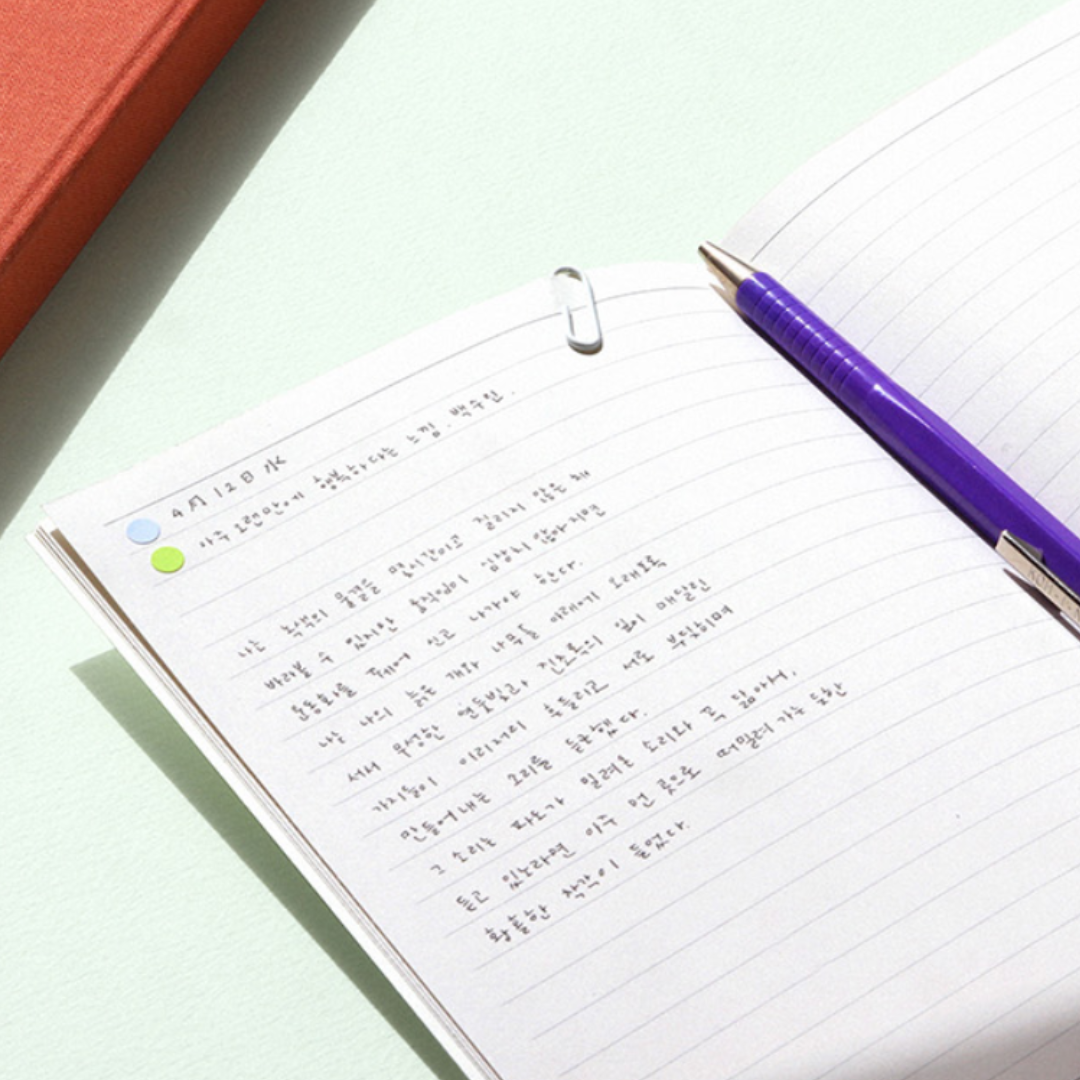 4月 12日 水
아주 오랜만에 행복하다는 느낌. 백수린.
나는 녹색의 물결을 몇 시간이고 질리지 않은 채
바라볼 수 있지만 움직임이 잠잠해지면
운동화를 꿰어 신고 나가야 한다.
나는 나의 늙은 개와 나무들 아래에 오래토록
서서 무성한 연둣빛과 진초록의 잎이 매달린
가지들이 이리저리 흔들리고 서로 부딪히며
만들어내는 소리를 듣곤 했다.
그 소리는 파도가 밀려온 소리와 꼭 닮아서,
듣고 있노라면 아주 먼 곳으로 떠밀려 가는 듯한
황홀한 착각이 들었다.